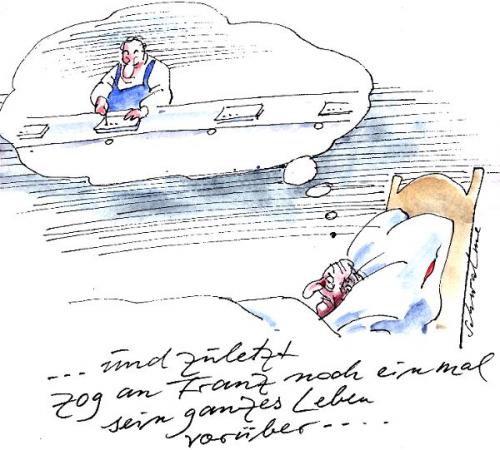 ... und zuletzt
zog an Franz noch einmal
sein ganzes Leben
vorüber....
Schwalme